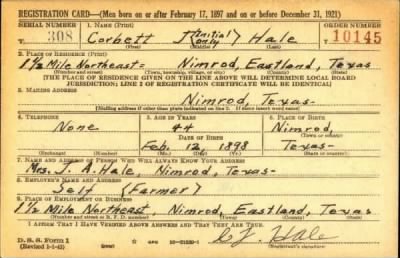 REGISTRATION CARD—(Men born on or after February 17, 1897 and on or before December 31, 1921)
SERIAL NUMBER 1. NAME (Print) ORDER NUMBER
T 308 Corbett J (Initial only) Hale T 10145
(First) (Middle) (Last)
2. PLACE OF RESIDENCE (Print)
1 1/2 Mile Northeast= Nimrod, Eastland, Texas
(Number and street) (Town, township, village, or city) (County) (State)
(THE PLACE OF RESIDENCE GIVEN ON THE LINE ABOVE WILL DETERMINE LOCAL BOARD
JURISDICTION; LINE 2 OF REGISTRATION CERTIFICATE WILL BE IDENTICAL)
3. MAILING ADDRESS
Nimrod, Texas-
(Mailing address if other than place indicated on line 2. If same insert word same)
4. TELEPHONE 5. AGE IN YEARS 6. PLACE OF BIRTH
None 44 Nimrod,
DATE OF BIRTH (Town or county)
Feb. 12, 1898 Texas-
(Exchange) (Number) (Mo.) (Day) (Yr.) (State or country)
7. NAME AND ADDRESS OF PERSON WHO WILL ALWAYS KNOW YOUR ADDRESS
Mrs. J. A. Hale, Nimrod, Texas-
8. EMPLOYER'S NAME AND ADDRESS
Self (Farmer)
9. PLACE OF EMPLOYMENT OR BUSINESS
1 1/2 Mile Northeast, Nimrod, Eastland, Texas
(Number and street or R. F. D. number) (Town) (County) (State)
I AFFIRM THAT I HAVE VERIFIED ABOVE ANSWERS AND THAT THEY ARE TRUE.
D. S. S. Form 1
(Revised 1-1-42) GPO C J. Hale
(Registrant's signature)